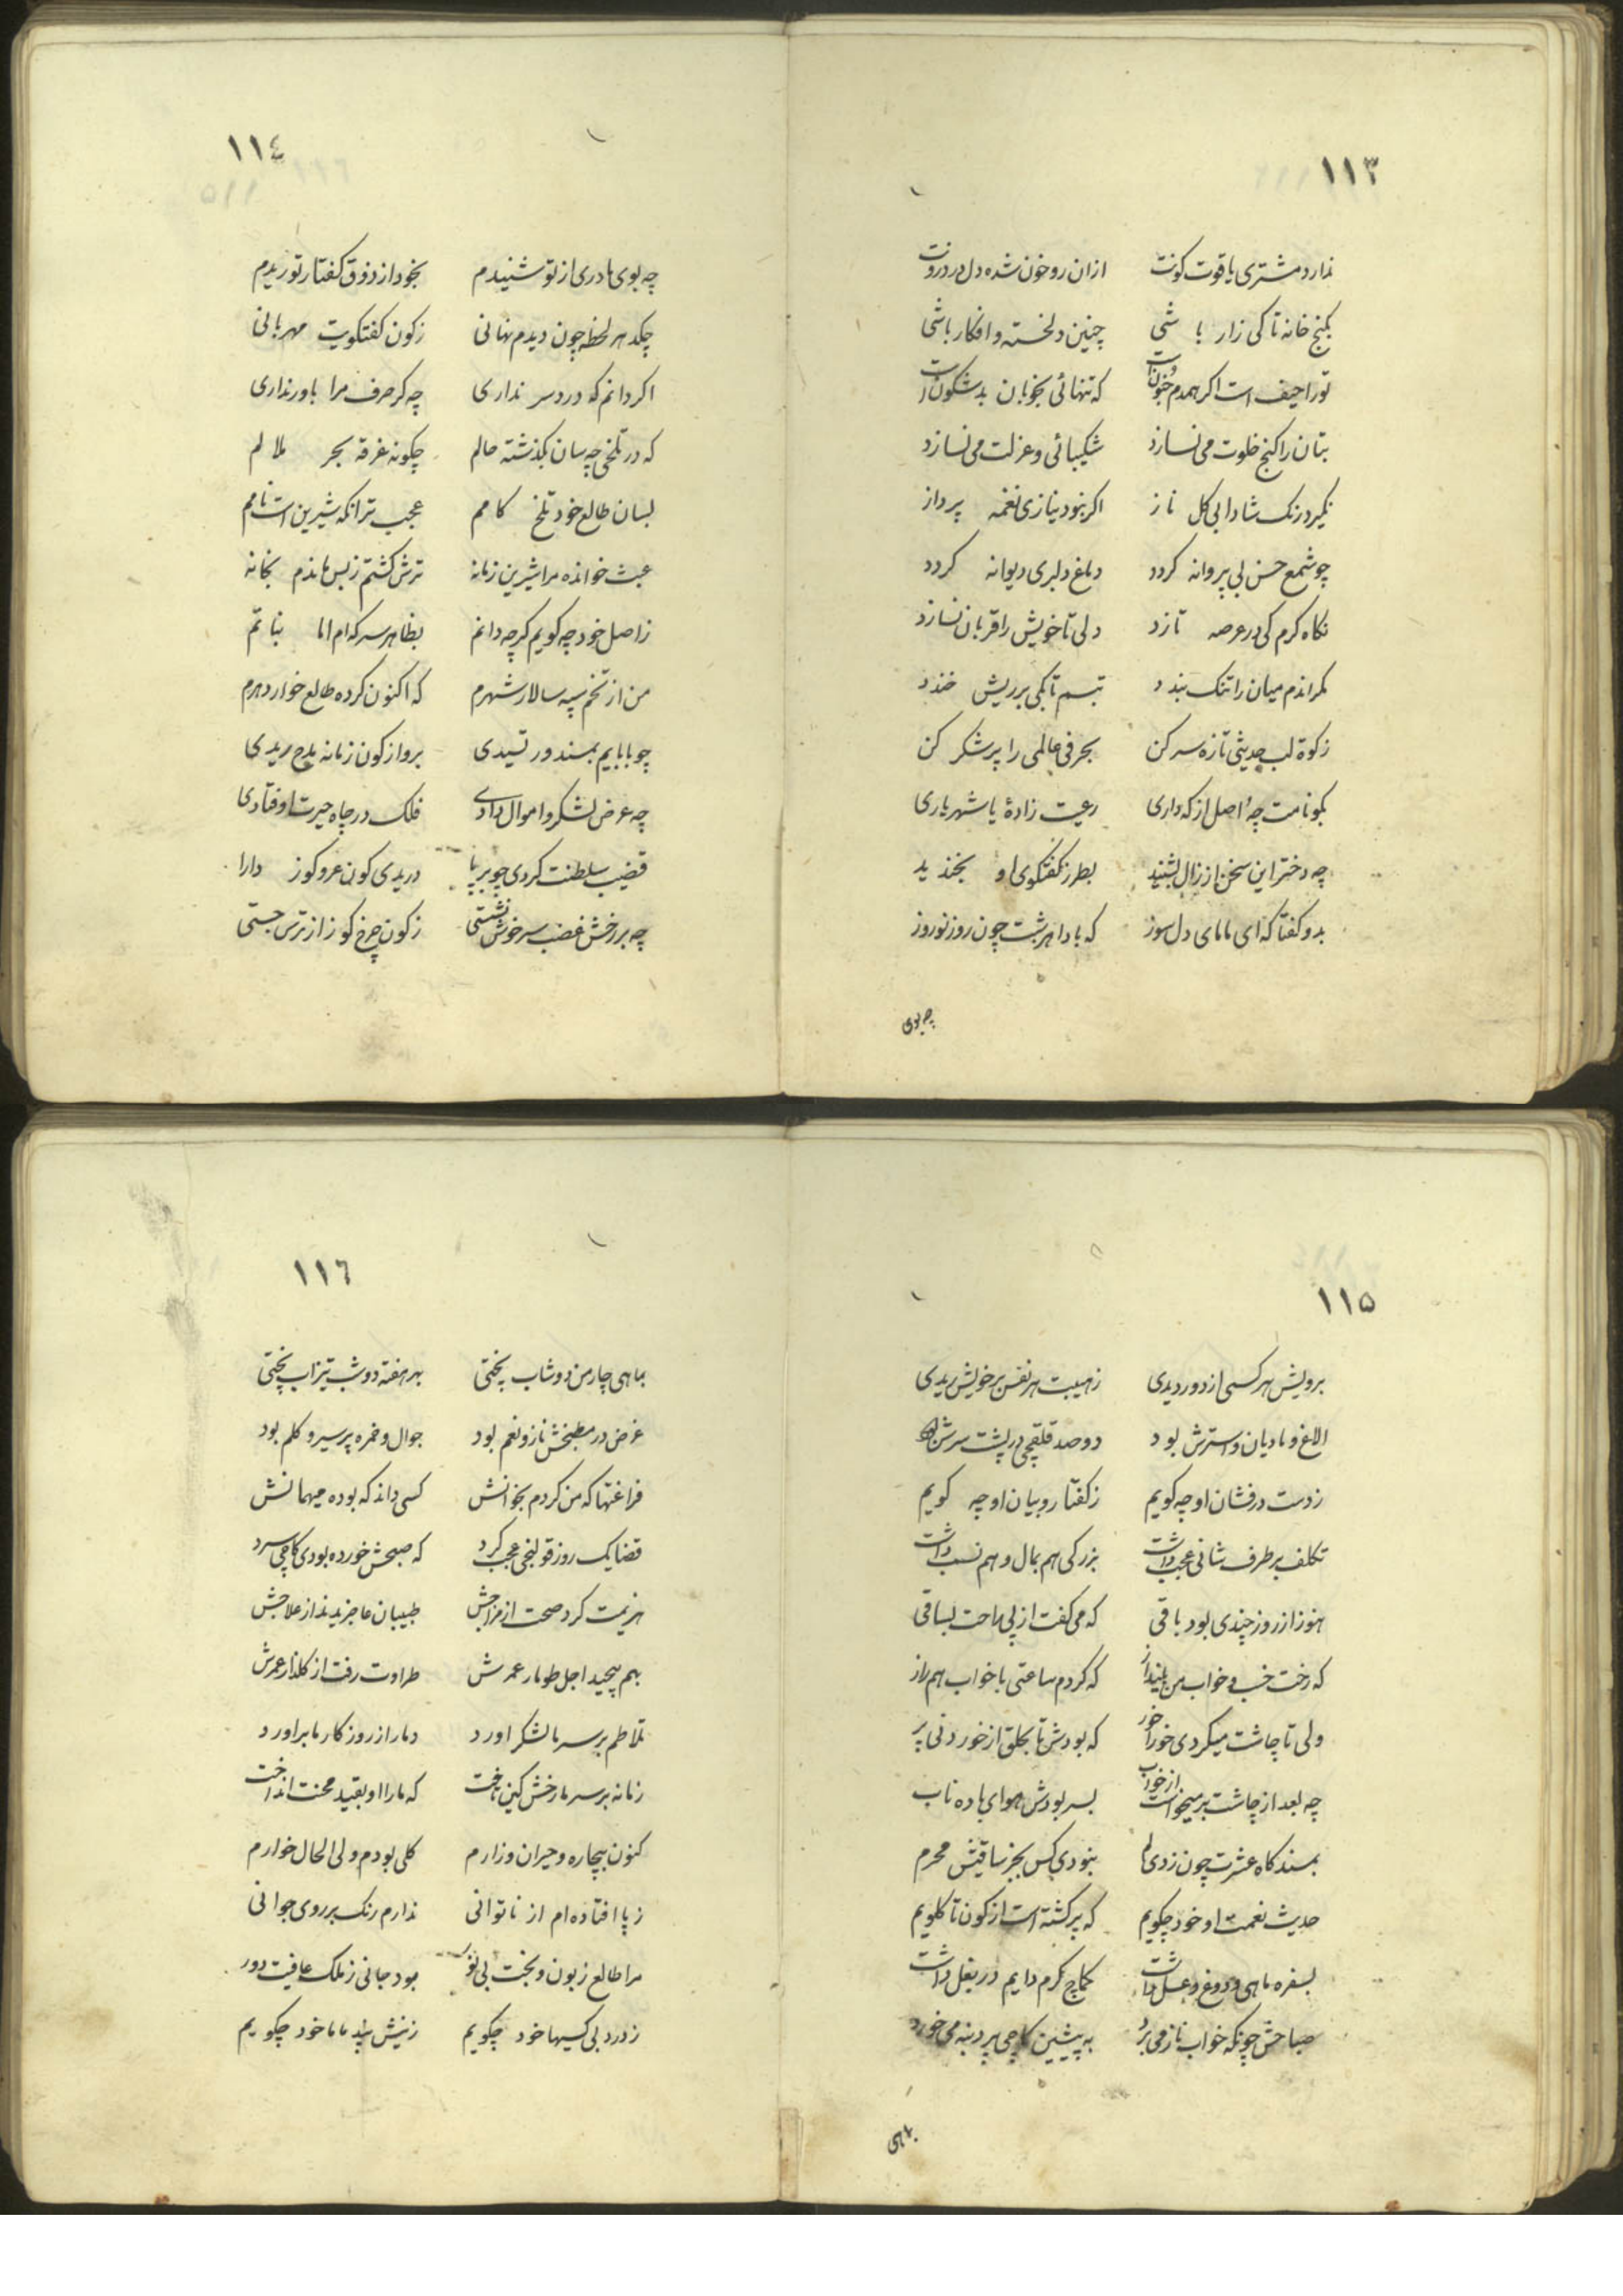 ١١٣
ندارد مشتری یاقوت کونت ازان رو خون شده دل در درونت
بکنج خانه تا کی زار باشی چنین دلخسته و افکار باشی
تو را حیف است اکر همدم خونست که تنهائی بخوبان بدشکونست
بتان را کنج خلوت می نسازد شکیبائی و عزلت می نسازد
نکیرد رنک شادابی کل ناز اکر نبود نیازی نغمه پرداز
چو شمع حسن بی پروانه کردد دماغ دلبری دیوانه کردد
نکاه کرم کی در عرصه تازد دلی تا خویش را قربان نسازد
کمر اندم میان را تنک بندد تبسم تا کی بر ریش خندد
زکوة لب حدیثی تازه سر کن بحرفی عالمی را پر شکر کن
بکو نامت چه اصل از که داری رعیت زادهٔ یا شهریاری
چه دختر این سخن از زال بشنید بطرز کفتکوی او بخندید
بدو کفتا که ای مامای دل سوز که بادا هر شبت چون روز نوروز
چه بوی
١١٤
چه بوی مادری از تو شنیدم بخود از ذوق کفتار تو ریدم
چکد هر لحظه چون دیدم نهانی ز کون کفتکویت مهربانی
اکر دانم که درد سر نداری چه کر حرف مرا باور نداری
که در تلخی چه سان بکذشته حالم چکونه غرقه بحر ملالم
بسان طالع خود تلخ کامم عجب تر انکه شیرین است نامم
عبث خوانده مرا شیرین زمانه ترش کشتم ز بس ماندم بخانه
ز اصل خود چه کویم کرچه دانم بظاهر سرکه ام اما نباتم
من از تخم سپه سالار شهرم که اکنون کرده طالع خوار دهرم
چو بابایم بمسند ور تسیدی برو از کون زمانه مدح ریدی
چه عرض لشکر و اموال دادی فلک در چاه حیرت اوفتادی
قضیب سلطنت کردی چو برپا دریدی کون عرو کوز دارا
چه بر رخش غضب سرخوش نشستی ز کون چرخ کوز از ترس جستی
١١٥
برویش هر کسی از دور دیدی ز هیبت هر نفس بر خویش ریدی
الاغ و مادیان و استرش بود دوصد قلقچی در پشت سرش بود
ز دست درفشان او چه کویم ز کفتار و بیان او چه کویم
تکلف بر طرف شانی عجب داشت بزرکی هم بمال و هم نسب داشت
هنوز از روز چندی بود باقی که می کفت از پی راحت بساقی
که رخت خسب و خواب من بینداز که کردم ساعتی با خواب هم راز
ولی تا چاشت میکردی خورا خور که بودش تا بحلق از خوردنی پر
چه بعد از چاشت بر میخواست از خواب بسر بودش هوای باده ناب
بمسند کاه عشرت چون زدی لم نبودی کس بجز ساقیش محرم
حدیث نعمت او خود چکویم که پر کشته است از کون تا کلویم
بسفره ماهی و دوغ و عسل داشت کماج کرم دایم در بغل داشت
صباحش چونکه خواب ناز می برد به پیشین کاچی پر دنبه می خورد
بماهی
١١٦
بماهی چار من دوشاب پختی بهر هفته دوشب تیزاب پختی
غرض در مطبخش ناز و نعم بود جوال و خمره پر سیر و کلم بود
فراغتها که من کردم بخوانش کسی داند که بوده میهمانش
قضا یک روز قولنجی عجب کرد که صبحش خورده بودی کاچی سرد
هزیمت کرد صحت از مزاجش طبیبان عاجزیدند از علاجش
بهم پیچید اجل طومار عمرش طراوت رفت از کلذار عمرش
تلاطم بر سر ما لشکر اورد دمار از روزکار ما براورد
زمانه بر سر ما رخش کین تاخت که ما را او بقید محنت انداخت
کنون بیچاره و حیران و زارم کلی بودم ولی الحال خوارم
ز پا افتاده ام از ناتوانی ندارم رنک بر روی جوانی
مرا طالع زبون و بخت بی نور بود جانی ز ملک عافیت دور
ز درد بی کسیها خود چکویم ز نیش پند ماما خود چکویم